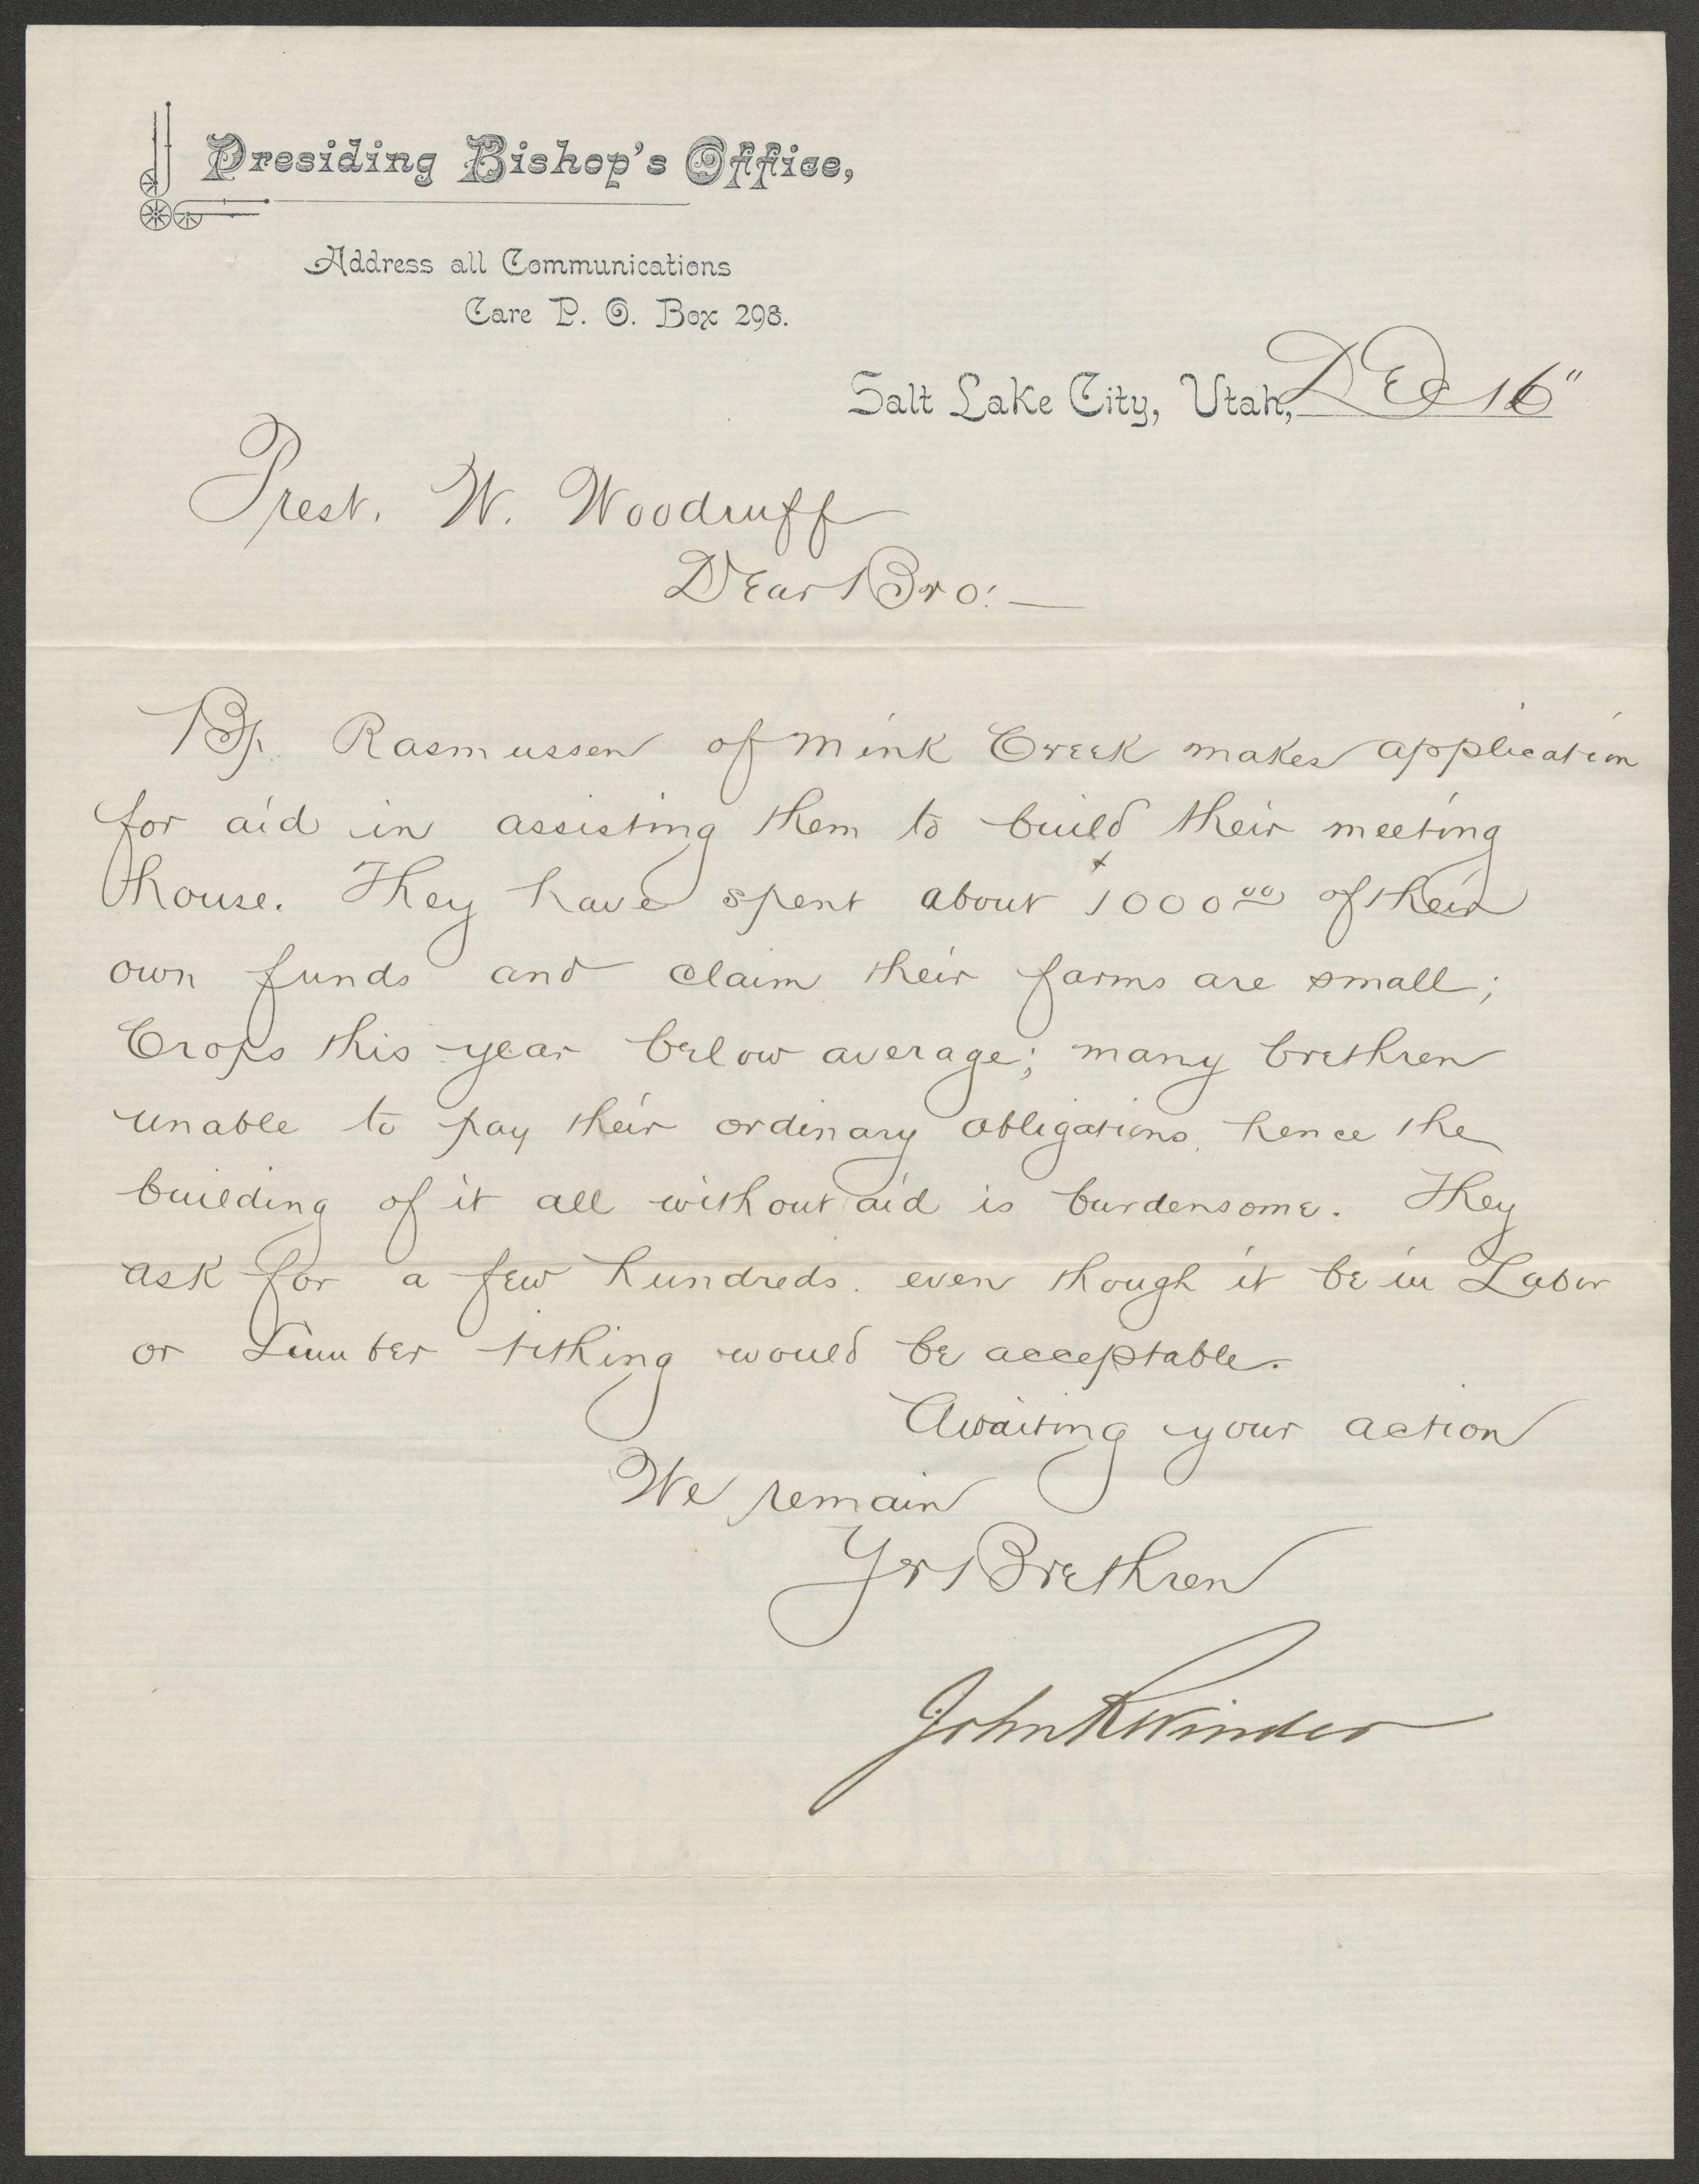 Presiding Bishop's Office,
Address all Communications
Care P. O. Box 298.
Salt Lake City, Utah, Dec 16"
Prest. W. Woodruff
Dear Bro:—
Bp. Rasmussen of Mink Creek makes application
for aid in assisting them to build their meeting
house. They have spent about $1000.00 of their
own funds and claim their farms are small;
Crops this year below average; many brethren
unable to pay their ordinary obligations, hence the
building of it all without aid is burdensome. They
ask for a few hundreds. even though it be in Labor
or Lumber tithing would be acceptable.
Awaiting your action
We remain
Yr Brethren
John R Winder